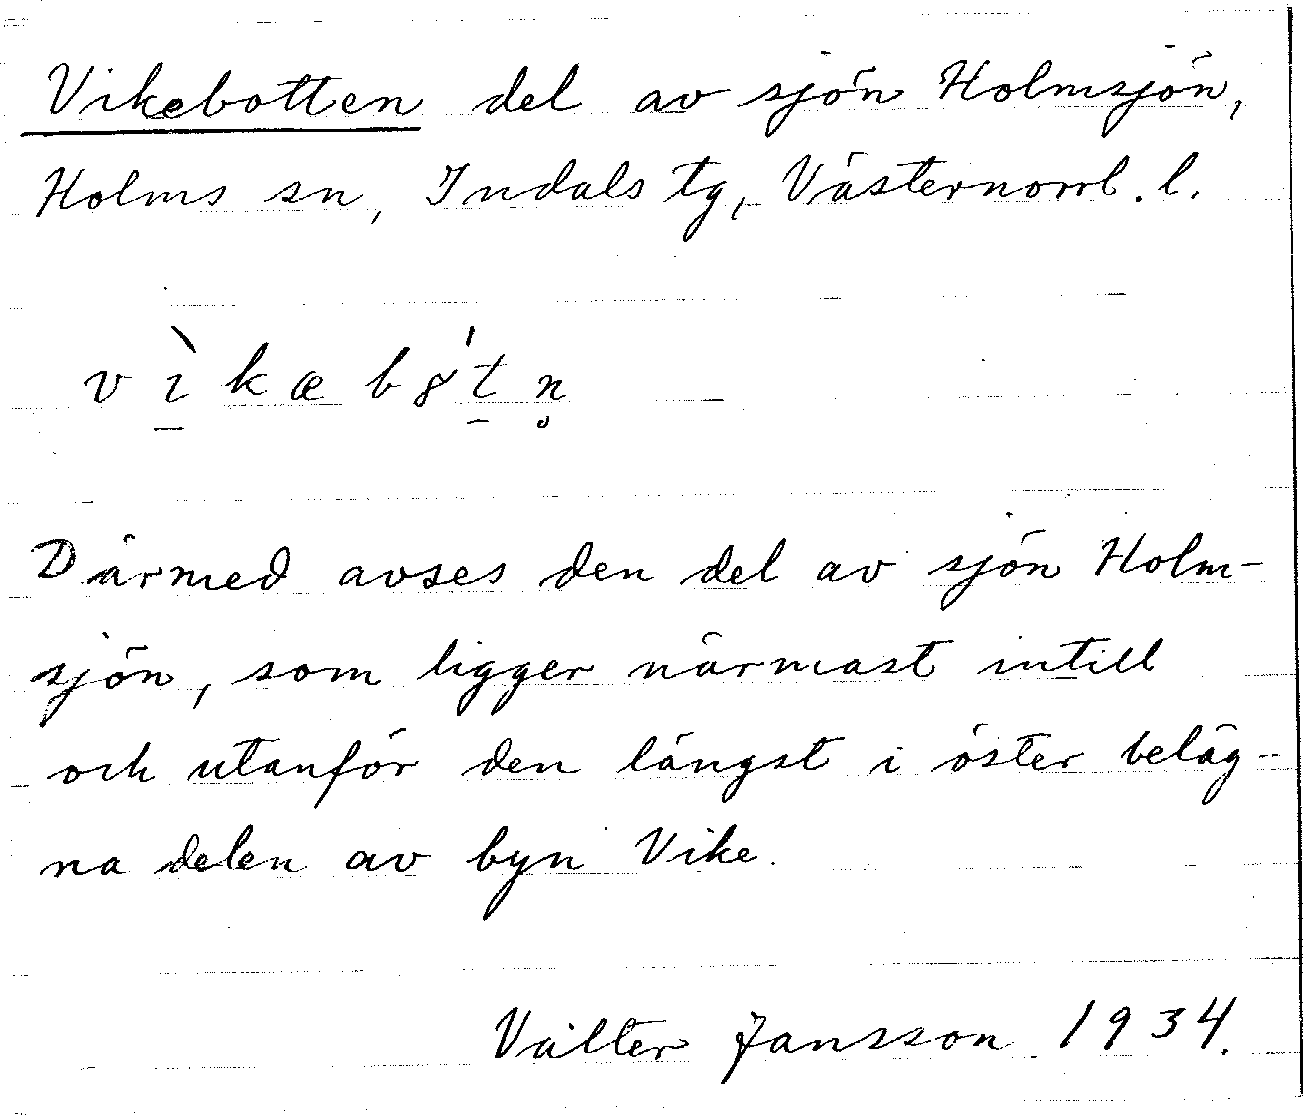 Vikebotten del av sjön Holmsjön,
Holms sn, Indals tg, Västernorrl. l.
v ì̱ k æ b 8́ ṯ n̥
Därmed avses den del av sjön Holm-
sjön, som ligger närmast intill
och utanför den längst i öster beläg-
na delen av byn Vike.
Valter Jansson 1934.